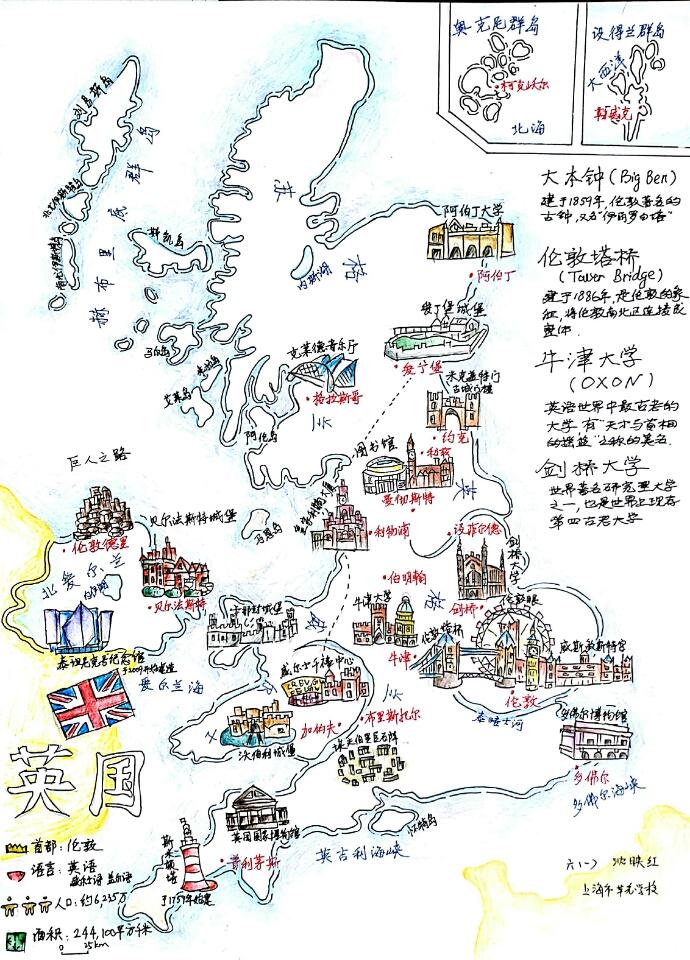 奥克尼群岛
设得兰群岛
大西洋
柯克沃尔
勒威克
北海
刘易斯岛
群岛
赫布里底
斯凯岛
苏格兰
内斯湖
阿伯丁大学
阿伯丁
爱丁堡城堡
爱丁堡
克莱德音乐厅
格拉斯哥
米克盖特门
古城门楼
约克
利兹
图书馆
曼彻斯特
马恩岛
阿伦岛
艾莱岛
利物浦
设菲尔德
伯明翰
剑桥大学
剑桥
伦敦眼
牛津大学
牛津
伦敦塔桥
威斯敏斯特宫
伦敦
泰晤士河
多佛尔博物馆
多佛尔
多佛尔海峡
巨人之路
伦敦德里
贝尔法斯特城堡
贝尔法斯特
北爱尔兰
泰坦尼克号纪念馆
爱尔兰海
卡那封城堡
英格兰
威尔士
威尔士千禧中心
加的夫
布里斯托尔
埃夫伯里巨石阵
英国国家博物馆
斯米顿塔
普利茅斯
英吉利海峡
怀特岛
大本钟(Big Ben)
建于1859年,伦敦著名的
古钟,又名"伊丽莎白塔"
伦敦塔桥
(Tower Bridge)
建于1886年,是伦敦的象
征,将伦敦南北区连接成
整体.
牛津大学
(OXON)
英语世界中最古老的
大学,有"天才与首相
的摇篮"之称的美名.
剑桥大学
世界著名研究型大学
之一,也是世界上现存
第四古老大学
英国
首都:伦敦
语言:英语
威尔士语 盖尔语
人口:约6,235万
面积:244,100平方千米
25km
六(一) 沈映红